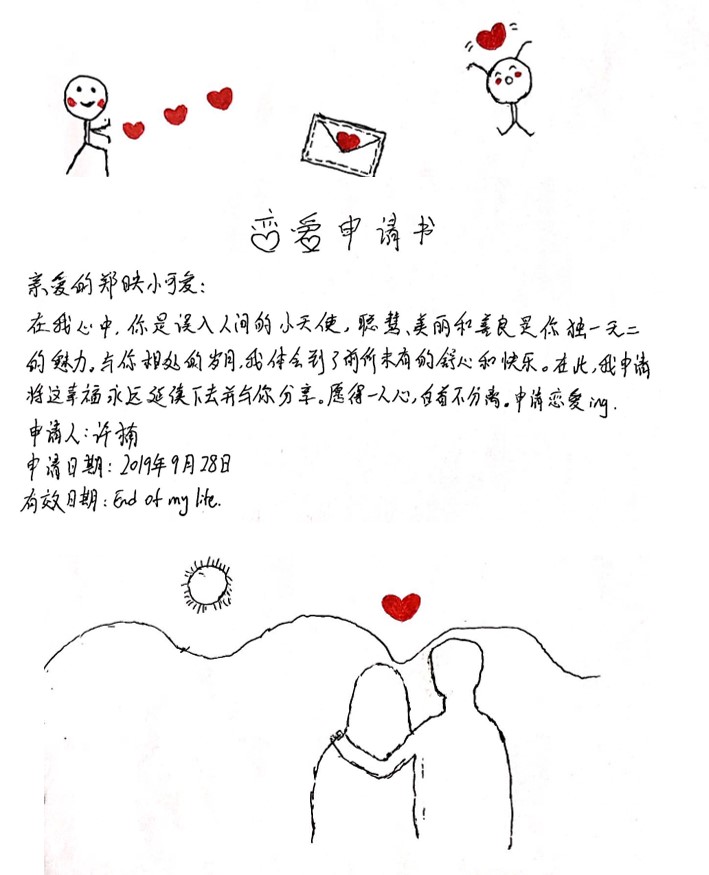 恋爱申请书
亲爱的郑映小可爱:
在我心中,你是误入人间的小天使,聪慧、美丽和善良是你独一无二
的魅力。与你相处的岁月,我体会到了前所未有的舒心和快乐。在此,我申请
将这幸福永远延续下去并与你分享。愿得一人心,白首不分离。申请恋爱ing.
申请人:许楠
申请日期:2019年9月28日
有效日期:End of my life.